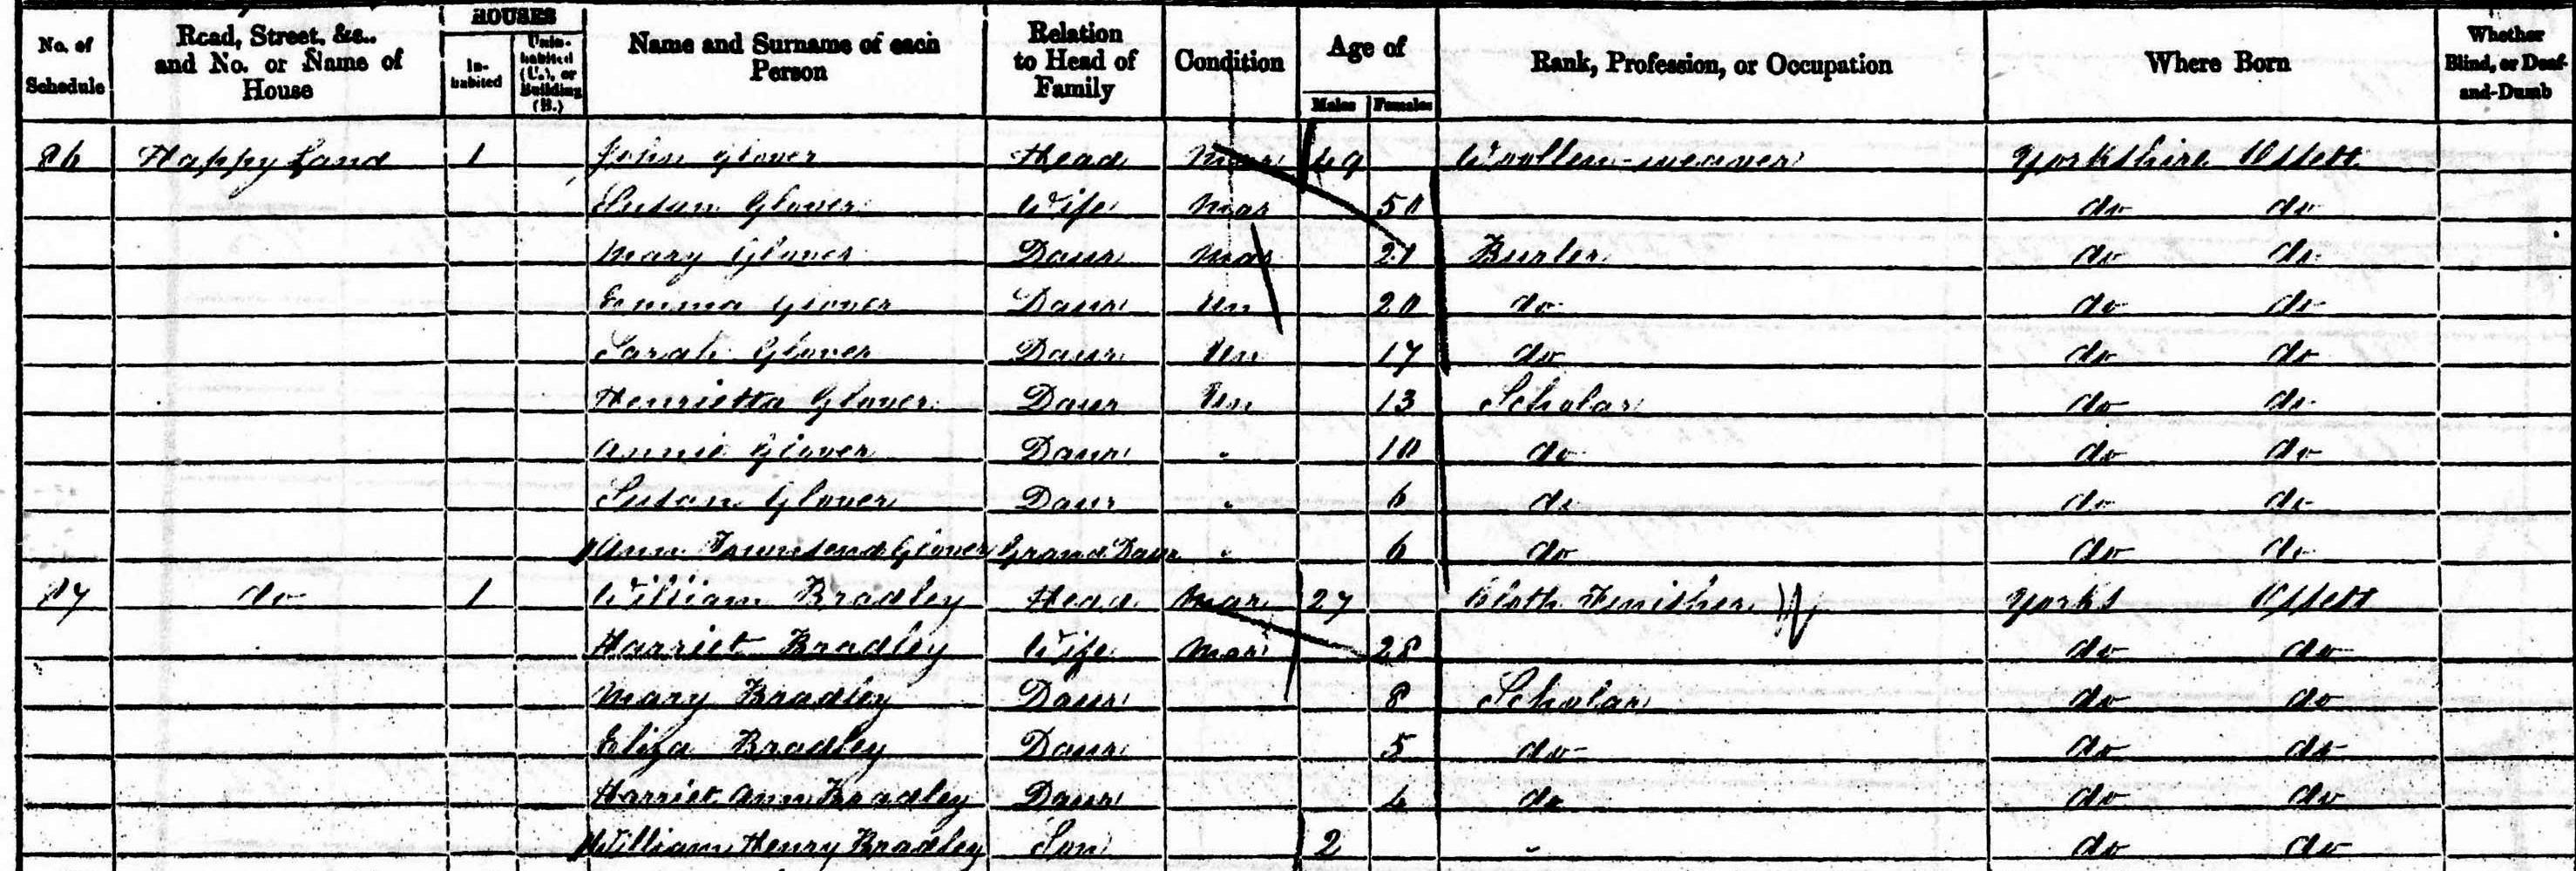 No. of Schedule | Road, Street, &c., and No. or Name of House | HOUSES In-habited | Unin-habited (U.), or Building (B.) | Name and Surname of each Person | Relation to Head of Family | Condition | Age of Males | Females | Rank, Profession, or Occupation | Where Born | Whether Blind, or Deaf-and-Dumb
86 Happy Land 1 John Glover Head Mar 49 Woollen-weaver Yorkshire Ossett
Susan Glover Wife Mar 50 do do
Mary Glover Daur Mar 21 Burler do do
Emma Glover Daur Un 20 do do do
Sarah Glover Daur Un 17 do do do
Henrietta Glover Daur Un 13 Scholar do do
Annie Glover Daur 10 do do do
Susan Glover Daur 6 do do do
Ann Townsend Glover Grand Daur 6 do do do
87 do 1 William Bradley Head Mar 27 Cloth Finisher Yorks Ossett
Harriet Bradley Wife Mar 28 do do
Mary Bradley Daur 8 Scholar do do
Eliza Bradley Daur 5 do do do
Harriet Ann Bradley Daur 4 do do do
William Henry Bradley Son 2 do do